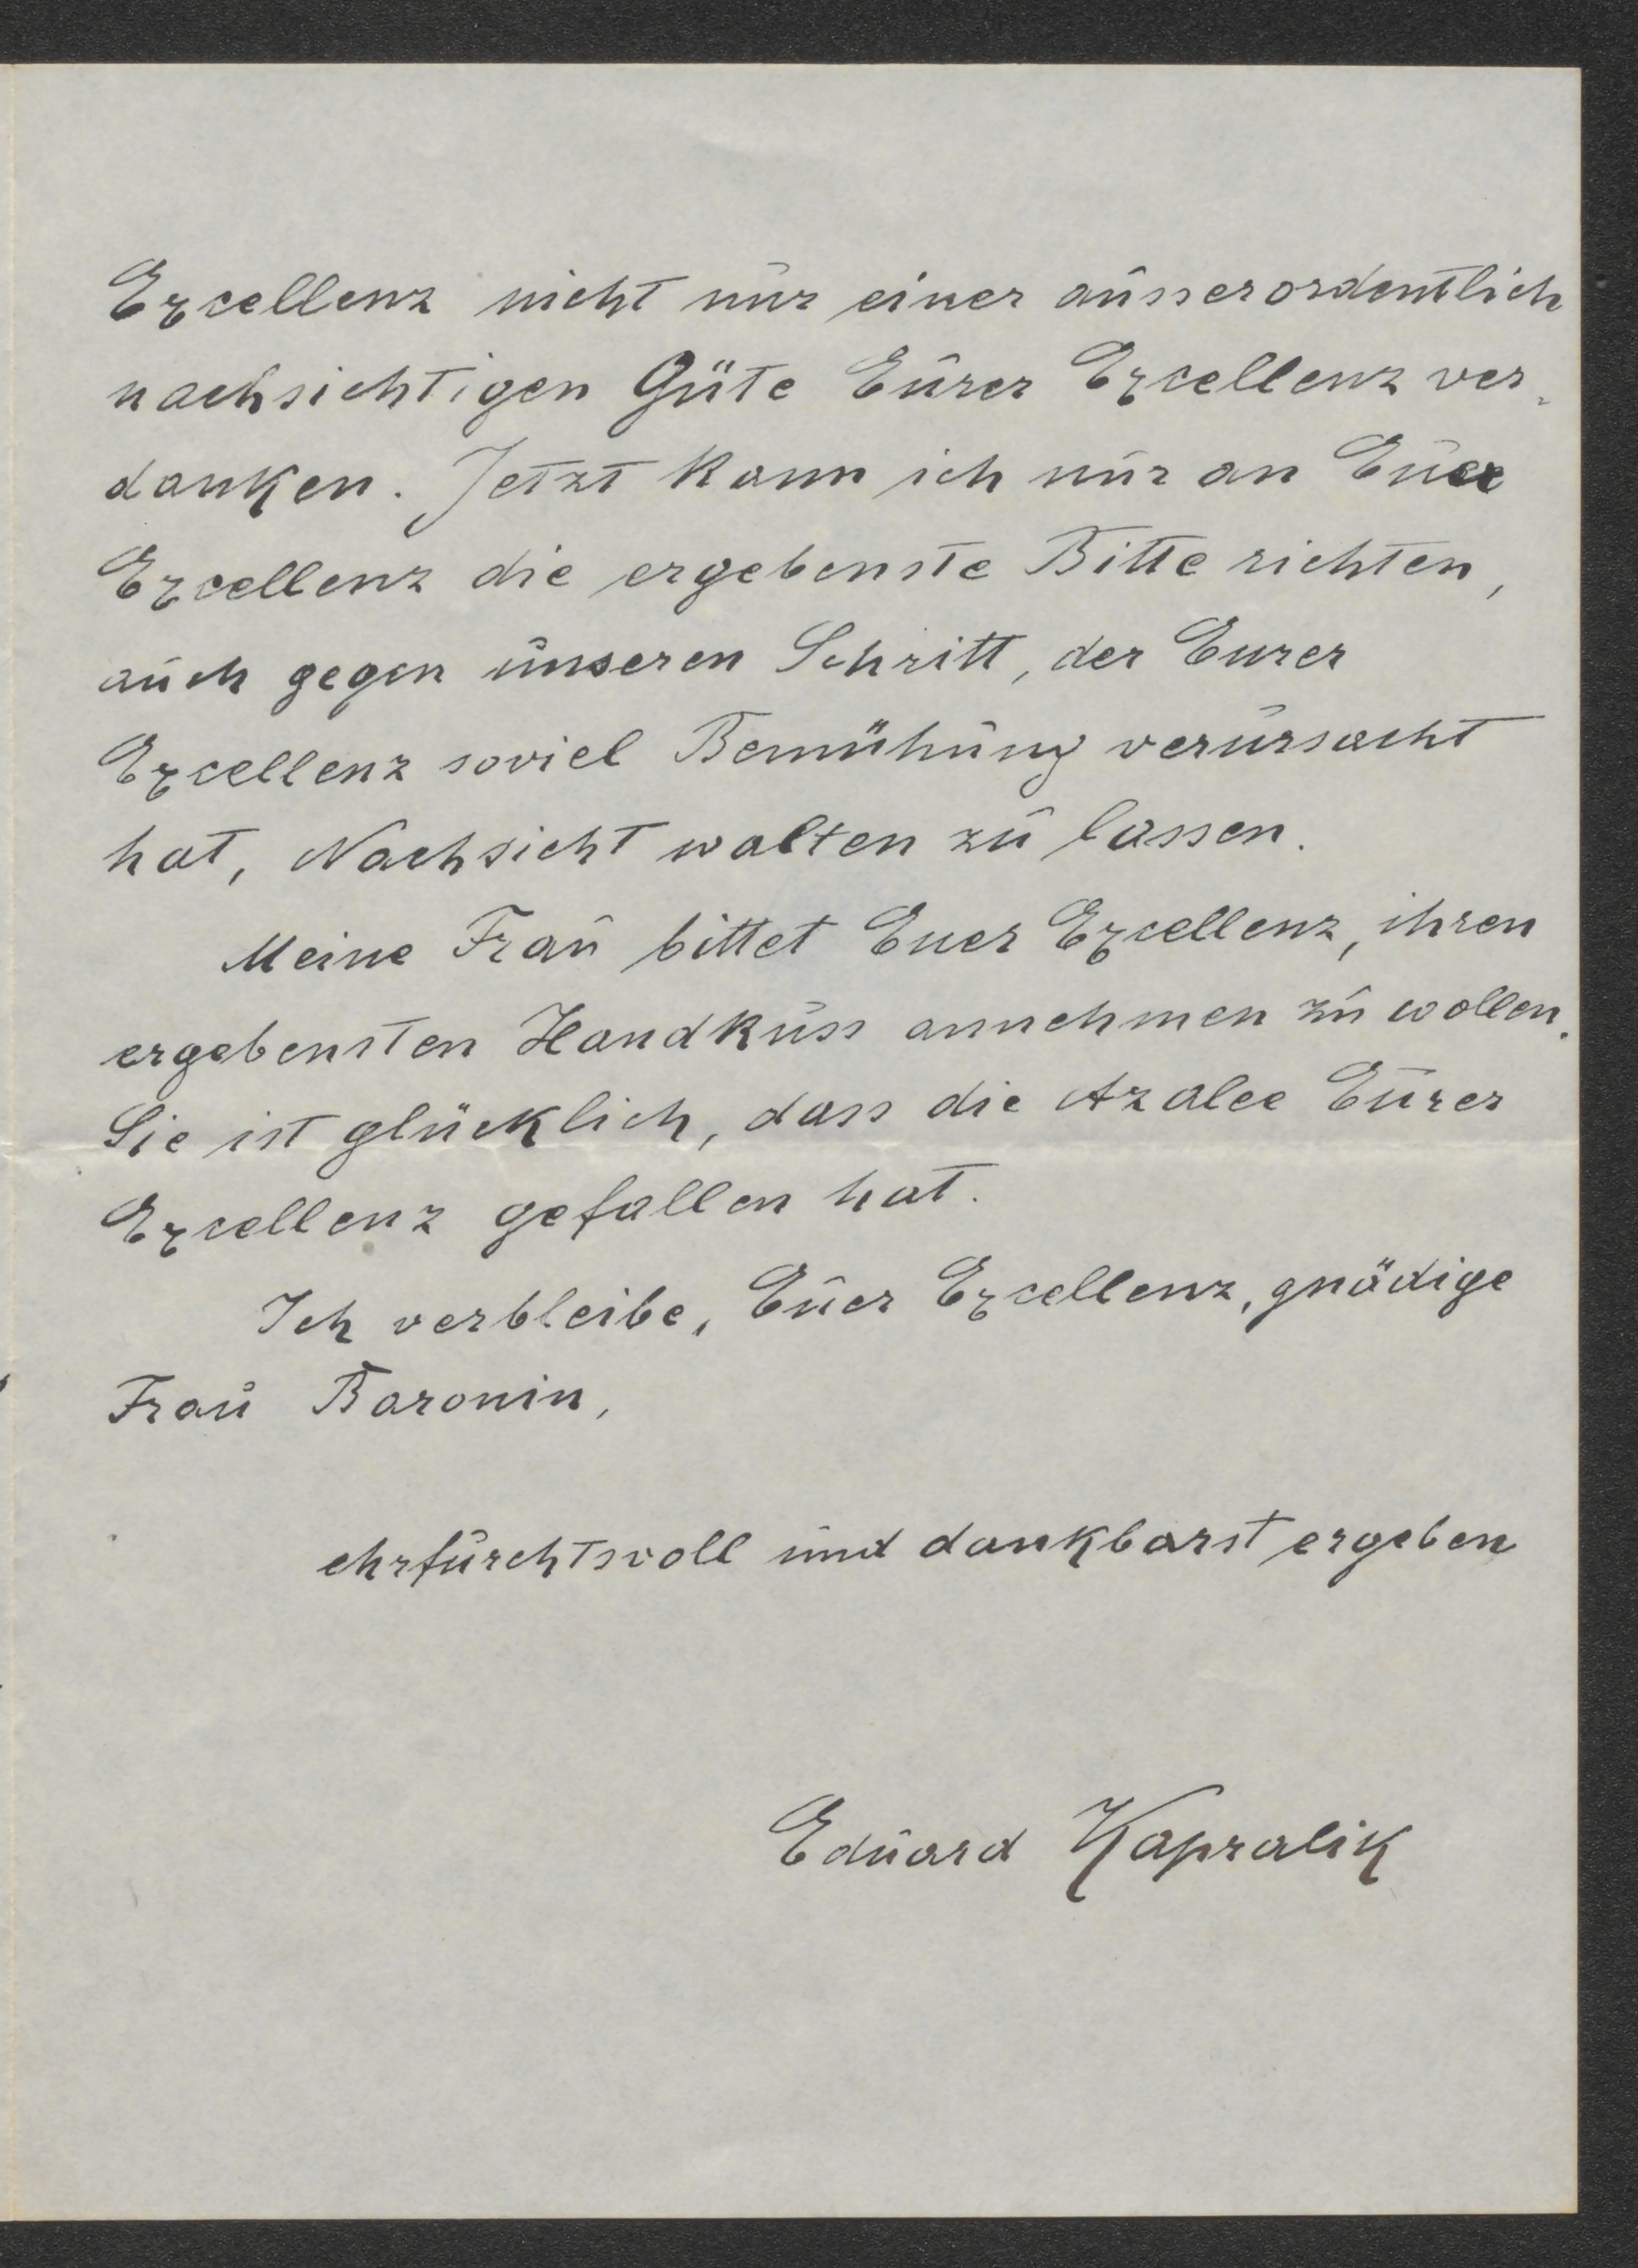 Excellenz nicht nur einer ausserordentlich
nachsichtigen Güte Eurer Excellenz ver-
danken. Jetzt kann ich nur an Euer
Excellenz die ergebenste Bitte richten,
auch gegen unseren Schritt, der Eurer
Excellenz soviel Bemühung verursacht
hat, Nachsicht walten zu lassen.
Meine Frau bittet Euer Excellenz, ihren
ergebensten Handkuss annehmen zu wollen.
Sie ist glücklich, dass die Azalee Eurer
Excellenz gefallen hat.
Ich verbleibe, Euer Excellenz, gnädige
Frau Baronin,
ehrfurchtsvoll und dankbarst ergeben
Eduard Kapralik